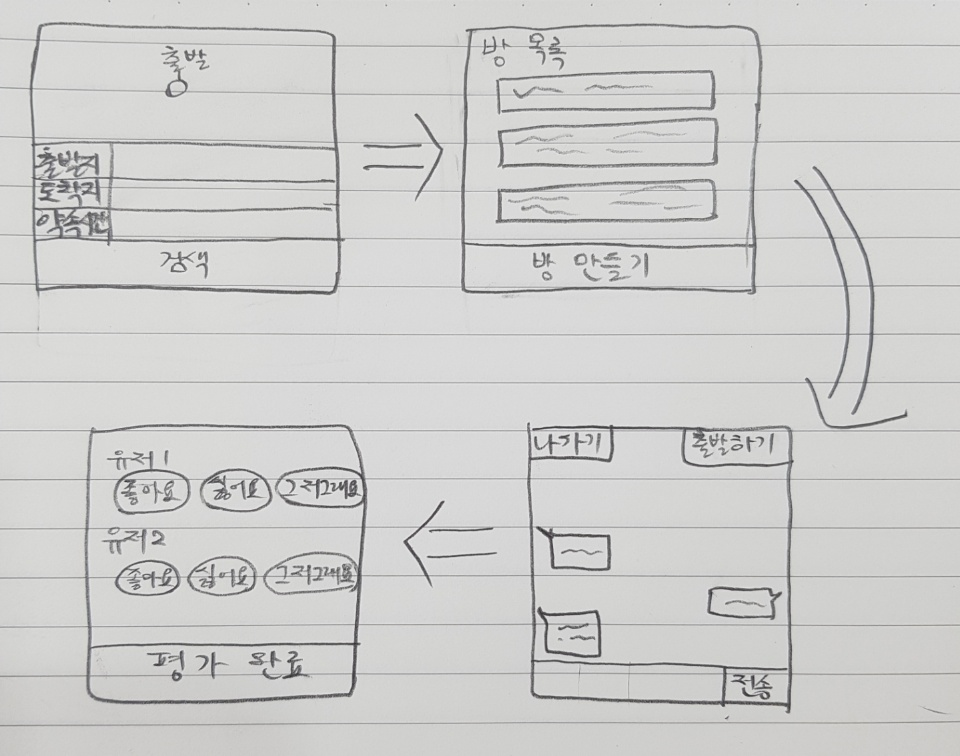 출발
출발지
도착지
약속시간
검색
방 목록
방 만들기
나가기 출발하기
전송
유저1
좋아요 싫어요 그저그래요
유저2
좋아요 싫어요 그저그래요
평가 완료